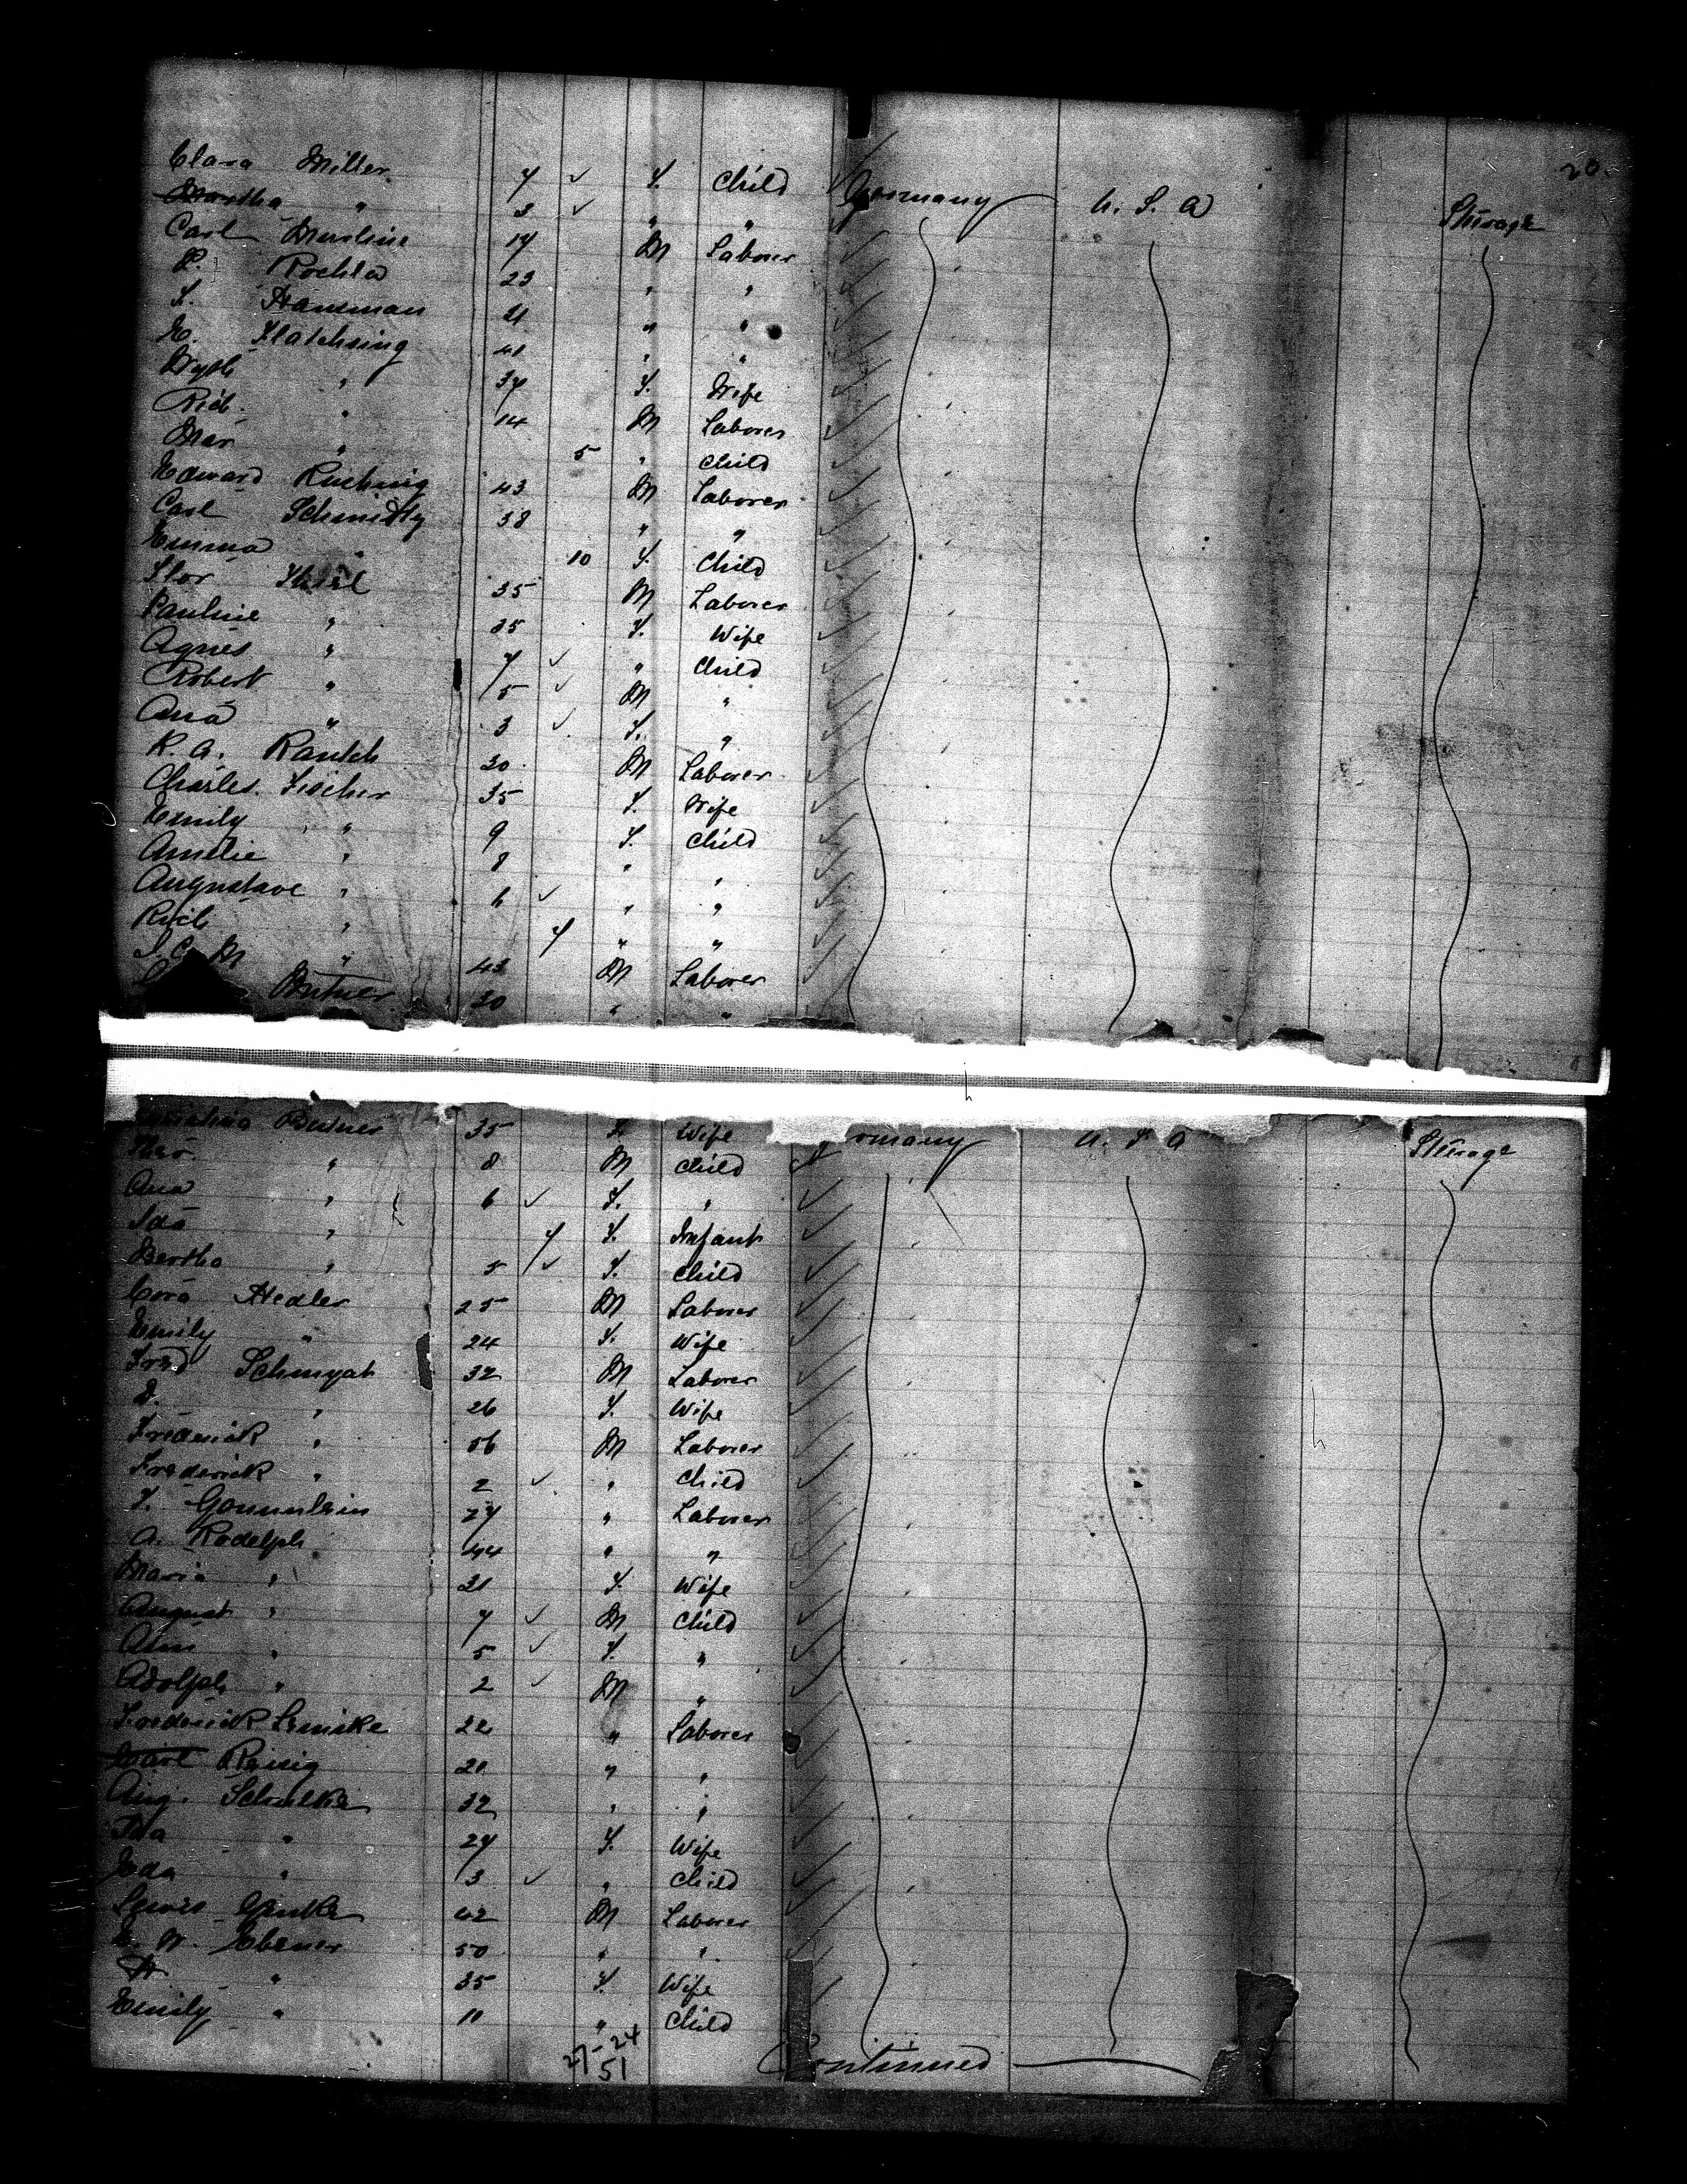 20.
Clara Miller 7 ✓ F. Child Germany U.S.A Steerage
Martha " 3 ✓ " "
Carl 17 M Laborer
P. Rochla 23 " "
F. Hansman 21 " "
E. Flatchsing 41 " "
" 37 F. Wife
Rich. " 14 M Laborer
Max " 5 " Child
Edward Ruching 43 M Laborer
Carl 38 " "
Emma " 10 F. Child
Flor 35 M Laborer
Pauline " 25 F. Wife
Agnes " 7 ✓ " Child
Robert " 5 ✓ M "
Ana " 3 ✓ F. "
R. A. Rautch 30 M Laborer
Charles Fischer 35 F. Wife
Emily " 9 F. Child
Amelie " 8 " "
Augustave " 6 ✓ " "
" 7 " "
" 43 M Laborer
Butner 30 " "
Butner 35 F. Wife Germany U.S.A Steerage
" 8 M Child
Ana " 6 ✓ F. "
Ida " 7 F. Infant
Bertha " 5 ✓ F. Child
Cora Hedler 25 M Laborer
Emily " 24 F. Wife
Fred Schmyat 32 M Laborer
D. " 26 F. Wife
Frederick " 56 M Laborer
Frederick " 2 ✓ " Child
F. 27 " Laborer
A. Rodelph 44 " "
Maria " 31 F. Wife
August " 7 ✓ M Child
" 5 ✓ F. "
Adolph " 2 ✓ M "
Frederick Lemke 22 " Laborer
Carl Reisig 21 " "
Aug. Schulke 32 " "
Ida " 27 F. Wife
Eda " 3 ✓ " Child
Lewis 42 M Laborer
E. W. Ebener 50 " "
" 35 F. Wife
Emily " 11 " Child
27-24
51
Continued